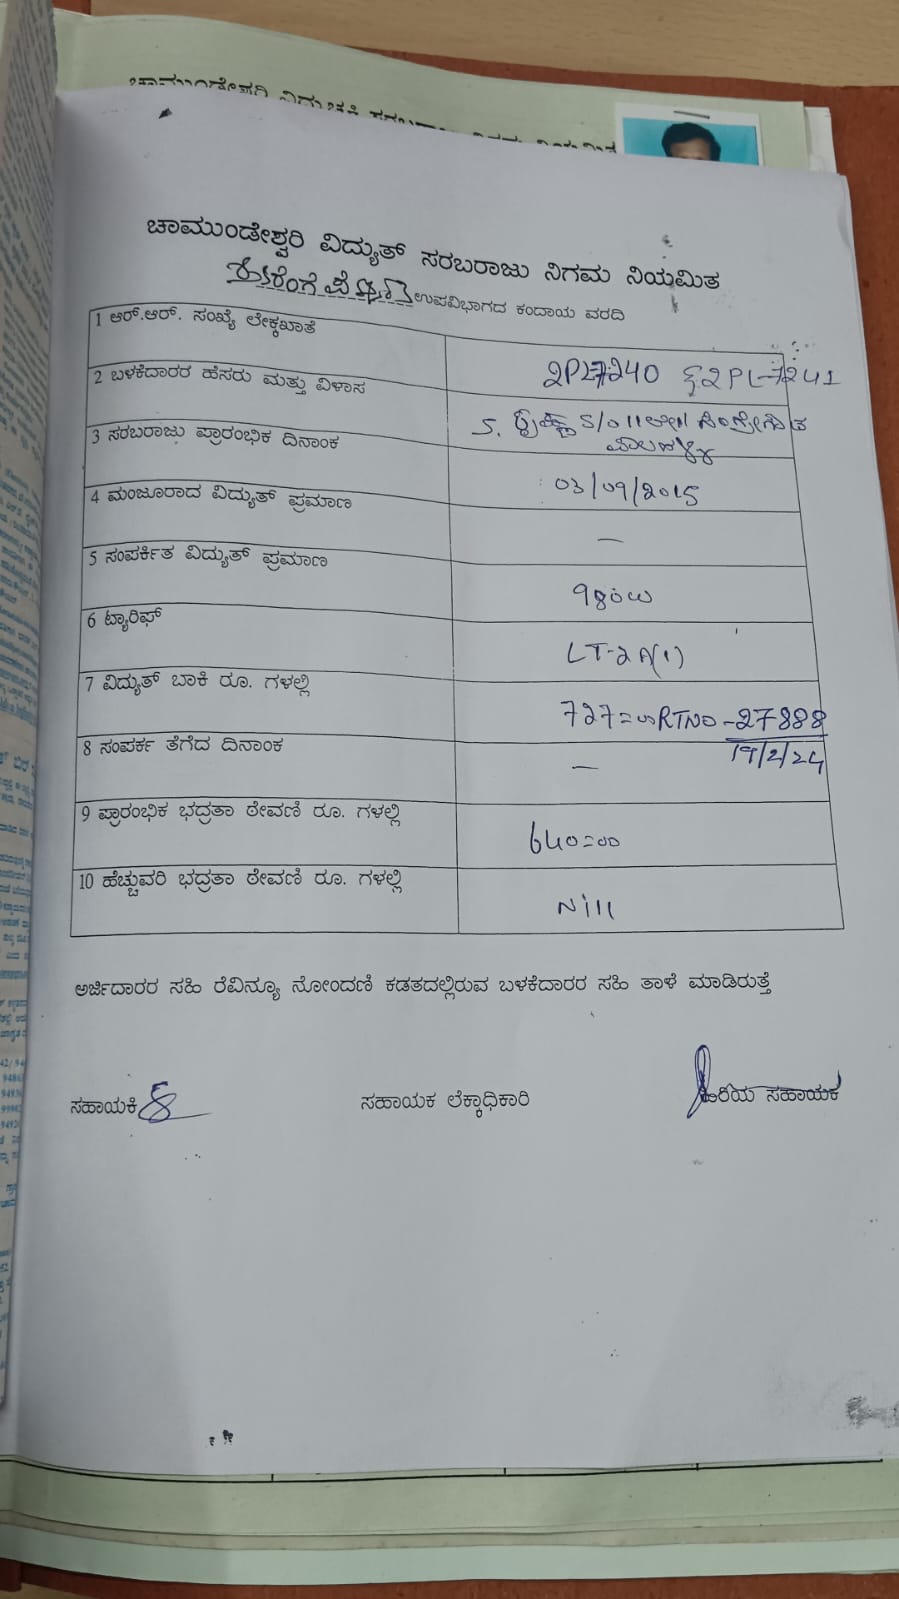 ಚಾಮುಂಡೇಶ್ವರಿ ವಿದ್ಯುತ್ ಸರಬರಾಜು ನಿಗಮ ನಿಯಮಿತ
ಉಪವಿಭಾಗದ ಕಂದಾಯ ವರದಿ
1 ಆರ್.ಆರ್. ಸಂಖ್ಯೆ ಲೇಕ್ಕಖಾತೆ
2PL7240 & 2PL-7241
2 ಬಳಕೆದಾರರ ಹೆಸರು ಮತ್ತು ವಿಳಾಸ
S. ಕೃಷ್ಣ S/o
3 ಸರಬರಾಜು ಪ್ರಾರಂಭಿಕ ದಿನಾಂಕ
03/09/2015
4 ಮಂಜೂರಾದ ವಿದ್ಯುತ್ ಪ್ರಮಾಣ
—
5 ಸಂಪರ್ಕಿತ ವಿದ್ಯುತ್ ಪ್ರಮಾಣ
980w
6 ಟ್ಯಾರಿಫ್
LT-2A(1)
7 ವಿದ್ಯುತ್ ಬಾಕಿ ರೂ. ಗಳಲ್ಲಿ
727=00 RTNO -27888
19/2/24
8 ಸಂಪರ್ಕ ತೆಗೆದ ದಿನಾಂಕ
—
9 ಪ್ರಾರಂಭಿಕ ಭದ್ರತಾ ಠೇವಣಿ ರೂ. ಗಳಲ್ಲಿ
640=00
10 ಹೆಚ್ಚುವರಿ ಭದ್ರತಾ ಠೇವಣಿ ರೂ. ಗಳಲ್ಲಿ
Nill
ಅರ್ಜಿದಾರರ ಸಹಿ ರೆವಿನ್ಯೂ ನೋಂದಣಿ ಕಡತದಲ್ಲಿರುವ ಬಳಕೆದಾರರ ಸಹಿ ತಾಳೆ ಮಾಡಿರುತ್ತೆ
ಸಹಾಯಕಿ ಸಹಾಯಕ ಲೆಕ್ಕಾಧಿಕಾರಿ ಹಿರಿಯ ಸಹಾಯಕ